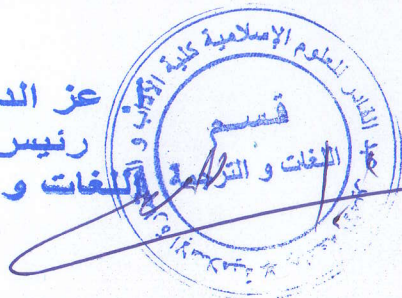 عز الد
رئيس
اللغات و
للعلوم الإسلامية كلية الآداب و
قسم
اللغات و الترجمة